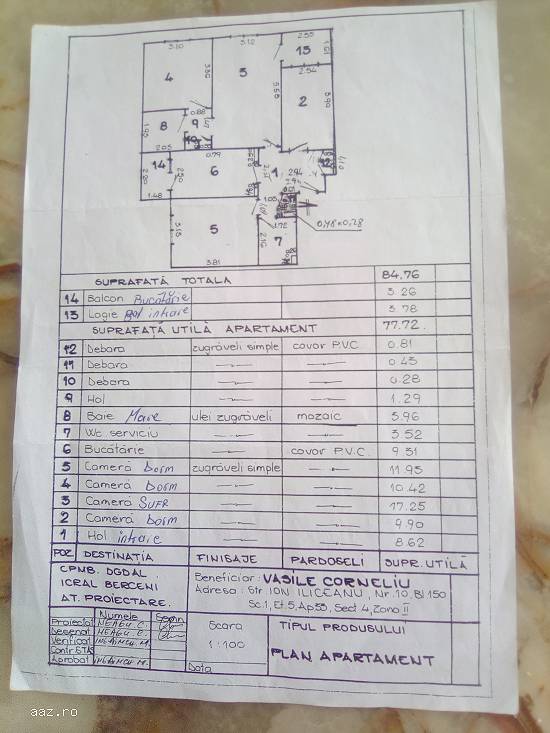 3.10
3.12
2.55
13
1.61
4
3
3.35
2.54
5.55
2
3.90
0.88
8
9
1.95
2.05
0.79
14
6
1
2.94
2.90
2.90
1.48
1.05
5
3.15
3.81
2.16
1.72
7
0,48x0,28
SUPRAFAȚĂ TOTALĂ 84.76
14 Balcon Bucătărie 3.26
13 Logie Hol intrare 3.78
SUPRAFAȚĂ UTILĂ APARTAMENT 77.72
12 Debara zugrăveli simple covor PVC 0.81
11 Debara 0.43
10 Debara 0.28
9 Hol 1.29
8 Baie Mare ulei zugrăveli mozaic 3.96
7 Wc serviciu 3.52
6 Bucătărie covor P.V.C. 9.31
5 Cameră dorm zugrăveli simple 11.95
4 Cameră dorm 10.42
3 Cameră SUFR 17.25
2 Cameră dorm 9.90
1 Hol intrare 8.62
POZ DESTINAȚIA FINISAJE PARDOSELI SUPR. UTILĂ
CPNB. DGDAL
ICRAL BERCENI
AT. PROIECTARE.
Beneficiar: VASILE CORNELIU
Adresa: Str. ION ILICEANU, Nr. 10, Bl 150
Sc.1, Et.5, Ap.55, Sect 4, Zona II
Numele Semn
Proiectat NEAGU C.
Desenat NEAGU C.
Verificat
Contr. STAS
Aprobat
Scara
1:100
Data
TIPUL PRODUSULUI
PLAN APARTAMENT
aaz.ro